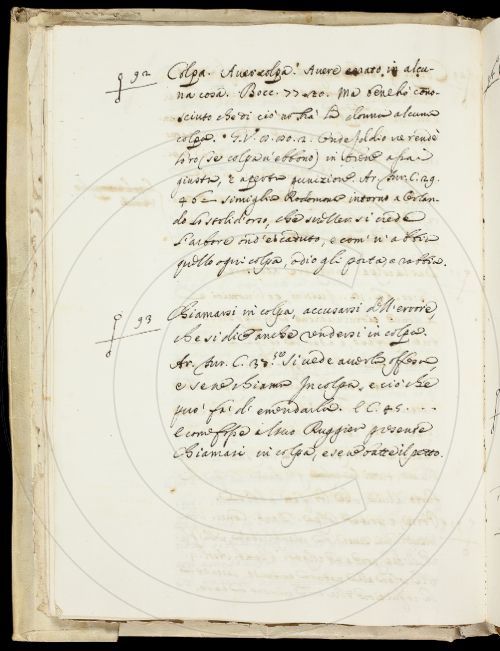 92 Colpa. Aver colpa. Avere errato in alcu-
na cosa. Bocc. 77. 20. Ma bene ho cono-
sciuto che di ciò non ha la donna alcuna
colpa. G. V. Onde Iddio ne rendè
loro (se colpa n'ebbono) in brieve assai
giusta, e aperta punizione. Ar. Fur. C. 29.
simiglia Rodomonte intorno a Orlan-
do Lo stolid' orso, che sveller si crede
L'arbore ond' è caduto, e com' v' abbia
quello ogni colpa, odio gli porta, e rabbia.
93 Chiamarsi in colpa, accusarsi dell' errore,
che si dice anche rendersi in colpa.
Ar. Fur. C. 38. Si vede averla offesa
e se ne chiama In colpa, e ciò che
può far di emendarla. E C. 45. ...
E come fosse al suo Ruggier presente
Chiamasi in colpa, e se ne batte il petto.